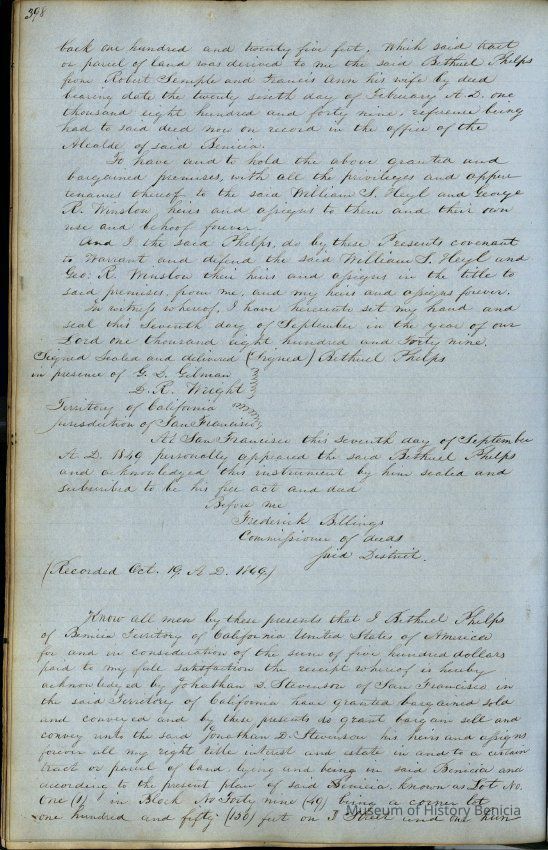 398
back one hundred and twenty five feet. Which said tract
or parcel of land was derived to me the said Bethuel Phelps
from Robert Semple and Francis Ann his wife by deed
bearing date the twenty sixth day of February A.D. one
thousand eight hundred and forty nine, reference being
had to said deed now on record in the office of the
Alcalde of said Benicia.
To have and to hold the above granted and
bargained premises, with all the privileges and appur
tenances thereof to the said William S. Heyl and George
R. Winslow heirs and assigns to them and their own
use and behoof forever.
And I the said Phelps, do by these Presents covenant
to Warrant and defend the said William S. Heyl and
Geo. R. Winslow their heirs and assigns in the title to
said premises, from me, and my heirs and assigns forever.
In witness whereof, I have hereunto set my hand and
seal this Seventh day of September in the year of our
Lord one thousand eight hundred and Forty nine.
Signed Sealed and delivered (Signed) Bethuel Phelps
in presence of G. D. Gilman
D. R. Wright
Territory of California
jurisdiction of San Francisco
At San Francisco this seventh day of September
A.D. 1849 personally appeared the said Bethuel Phelps
and acknowledged this instrument by him sealed and
subscribed to be his free act and deed
Before me
Frederick Billings
Commissioner of deeds
said District.
(Recorded Oct. 19, A.D. 1849)
Know all men by these presents that I Bethuel Phelps
of Benicia Territory of California United States of America
for and in consideration of the sum of five hundred dollars
paid to my full satisfaction the receipt whereof is hereby
acknowledged by Jonathan D. Stevenson of San Francisco in
the said Territory of California have granted bargained sold
and conveyed and by these presents do grant bargain sell and
convey unto the said Jonathan D. Stevenson his heirs and assigns
forever all my right title interest and estate in and to a certain
tract or parcel of land lying and being in said Benicia and
according to the present plan of said Benicia, known as Lot No.
One (1) in Block No Forty nine (49) being a corner lot
one hundred and fifty (150) feet on I Street and one hun
Museum of History Benicia